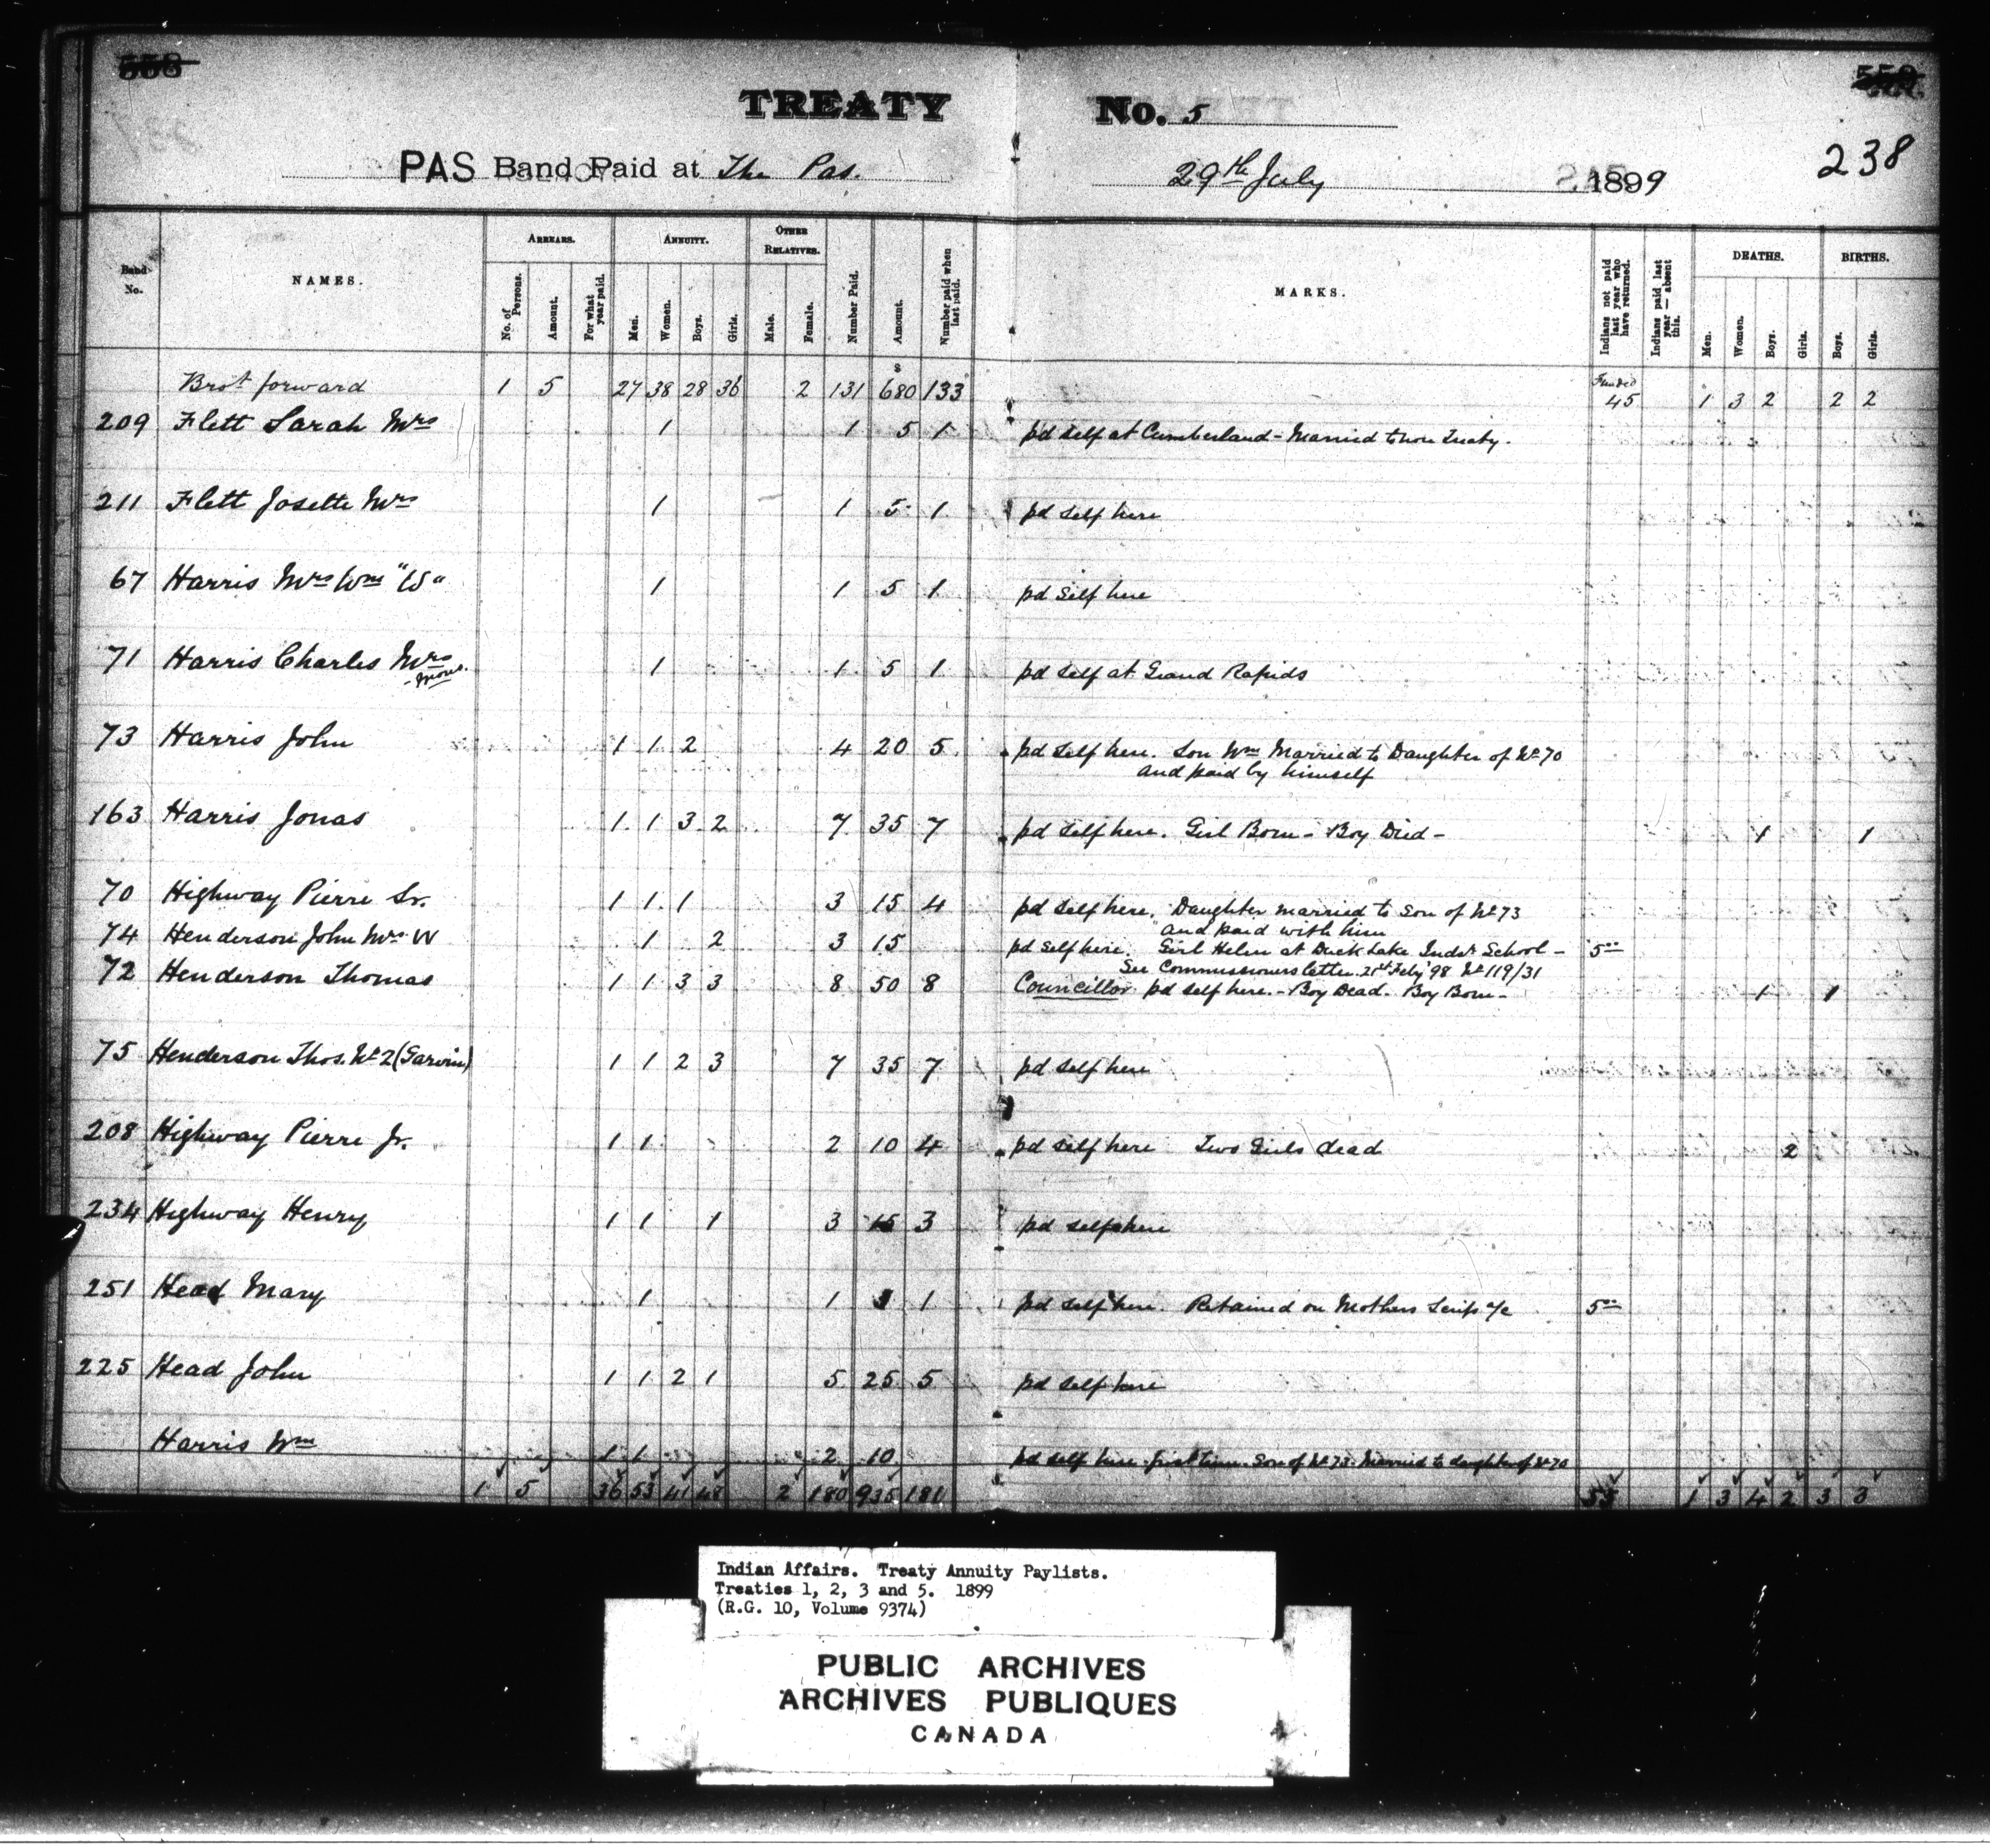 558
559
TREATY No. 5
238
PAS Band Paid at The Pas. 29th July 1899
Band No.
NAMES.
ARREARS.
No. of Persons.
Amount.
For what year paid.
ANNUITY.
Men.
Women.
Boys.
Girls.
OTHER RELATIVES.
Male.
Female.
Number Paid.
Amount.
Number paid when last paid.
MARKS.
Indians not paid last year who have returned.
Indians paid last year — absent this.
DEATHS.
Men.
Women.
Boys.
Girls.
BIRTHS.
Boys.
Girls.
Brot forward 1 5 27 38 28 36 2 131 $680 133 Funded 45 1 3 2 2 2
209 Flett Sarah Mrs 1 1 5 1 pd self at Cumberland - Married to non Treaty.
211 Flett Josette Mrs 1 1 5 1 pd self here
67 Harris Mrs Wm "W" 1 1 5 1 pd self here
71 Harris Charles Mrs 1 1 5 1 pd self at Grand Rapids
73 Harris John 1 1 2 4 20 5 pd self here. Son Wm Married to Daughter of No 70
and paid by himself
163 Harris Jonas 1 1 3 2 7 35 7 pd self here. Girl Born - Boy Died - 1 1
70 Highway Pierre Sr. 1 1 1 3 15 4 pd self here. Daughter married to son of No 73
and paid with him
74 Henderson John Mrs W 1 2 3 15 pd self here. Girl Helen at Duck Lake Indst School - 5 00
See Commissioners letter 21st Feby 98 No 119/31
72 Henderson Thomas 1 1 3 3 8 50 8 Councillor pd self here. - Boy Dead. Boy Born - 1 1
75 Henderson Thos. No 2 (Garvin) 1 1 2 3 7 35 7 pd self here
208 Highway Pierre Jr. 1 1 2 10 4 pd self here Two Girls dead 2
234 Highway Henry 1 1 1 3 15 3 pd self here
251 Head Mary 1 1 1 pd self here. Retained on Mothers Scrip a/c 5 00
225 Head John 1 1 2 1 5 25 5 pd self here
Harris Wm 1 1 2 10 pd self here first time. Son of No 73. Married to daughter of No 70
1 5 36 53 41 48 2 180 935 181 55 1 3 4 2 3 3
Indian Affairs. Treaty Annuity Paylists.
Treaties 1, 2, 3 and 5. 1899
(R.G. 10, Volume 9374)
PUBLIC ARCHIVES
ARCHIVES PUBLIQUES
CANADA